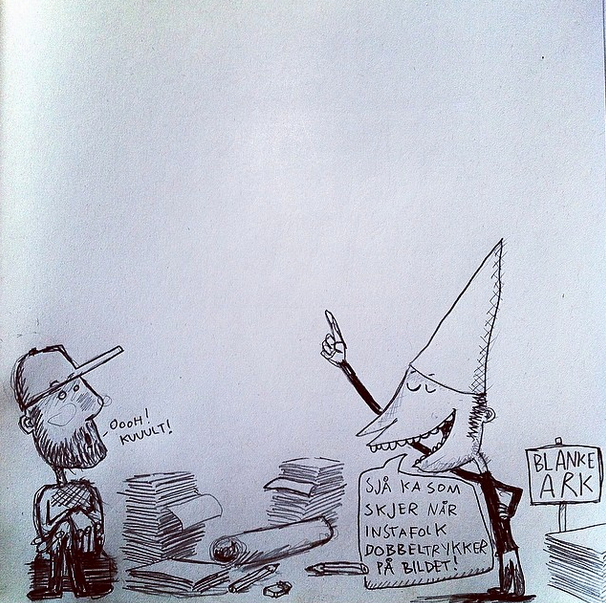 OOOH!
KUUULT!
SJÅ KA SOM
SKJER NÅR
INSTAFOLK
DOBBELTRYKKER
PÅ BILDET!
BLANKE
ARK